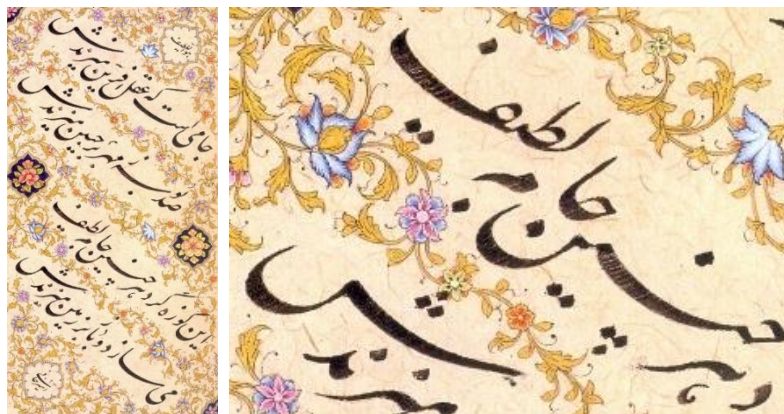 جامی است که عقل آفرین میزندش
صد بوسه ز مهر بر جبین میزندش
این کوزه‌گر دهر چنین جام لطیف
می‌سازد و باز بر زمین میزندش
چنین جام لطیف